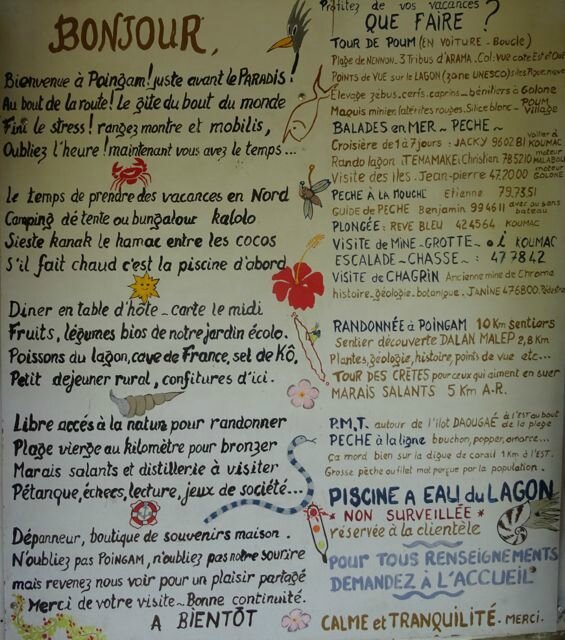 BONJOUR,
Bienvenue à Poingam! juste avant le PARADIS!
Au bout de la route! Le gîte du bout du monde
Fini le stress! rangez montre et mobilis,
Oubliez l'heure! maintenant vous avez le temps...
Le temps de prendre des vacances en Nord
Camping détente ou bungalow kalolo
Sieste kanak le hamac entre les cocos
S'il fait chaud c'est la piscine d'abord
Diner en table d'hôte - carte le midi
Fruits, légumes bios de notre jardin écolo.
Poissons du lagon, cave de France, sel de Kô,
Petit dejeuner rural, confitures d'ici.
Libre accés à la nature pour randonner
Plage vierge au kilomètre pour bronzer
Marais salants et distillerie à visiter
Pétanque, échecs, lecture, jeux de société...
Dépanneur, boutique de souvenirs maison.
N'oubliez pas POINGAM, n'oubliez pas notre sourire
mais revenez nous voir pour un plaisir partagé
Merci de votre visite ~ Bonne continuité.
A BIENTÔT
Profitez de vos vacances
QUE FAIRE ?
TOUR DE POUM (EN VOITURE - Boucle)
Plage de NENNON. 3 Tribus d'ARAMA. Col: VUE cote Est et Ouest
POINTS de VUE sur le LAGON (zone UNESCO) sites Pique nique
Elevage zébus. cerfs. caprins - bénitiers à Golone
Maquis minier, latérites rouges. Silice blanc - POUM village
BALADES en MER ~ PECHE ~
Croisière de 1 à 7 jours: JACKY 960281 Voilier à KOUMAC
Rando lagon: TEMAMAKE: Christian 785210 moteur MALABOU
Visite des îles. Jean-pierre 47.20.00 moteur GOLONE
PECHE À LA MOUCHE Etienne 79.73.51
GUIDE DE PECHE Benjamin 994611 avec ou sans bateau
PLONGÉE: REVE BLEU 424564 KOUMAC
VISITE DE MINE - GROTTE ~ à KOUMAC
ESCALADE ~ CHASSE ~: 477842
VISITE DE CHAGRIN Ancienne mine de Chrome
histoire. géologie. botanique. JANINE 476800. Pédestre
RANDONNÉE à POINGAM 10 Km sentiers
Sentier découverte DALAN MALEP 2,8 Km
Plantes, géologie, histoire, points de vue etc...
TOUR DES CRÊTES pour ceux qui aiment en suer
MARAIS SALANTS 5 Km A.R.
P.M.T. autour de l'îlot DAOUGAÉ à l'est au bout de la plage
PECHE à la ligne bouchon, popper, amorce...
Ça mord bien sur la digue de corail 1 Km à l'EST.
Grosse pêche au filet mal perçue par la population.
PISCINE A EAU du LAGON
* NON SURVEILLÉE *
réservée à la clientèle
POUR TOUS RENSEIGNEMENTS
DEMANDEZ À L'ACCUEIL
CALME et TRANQUILITÉ. MERCI.